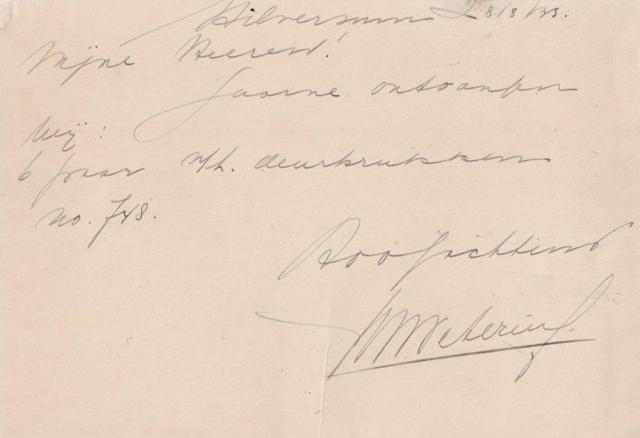 Hilversum 28/8/33.
Mijne Heeren!
Gaarne ontvangen
wij:
6 paar n/h. deurkrukken
no. 748.
Hoogachtend
Wetering.